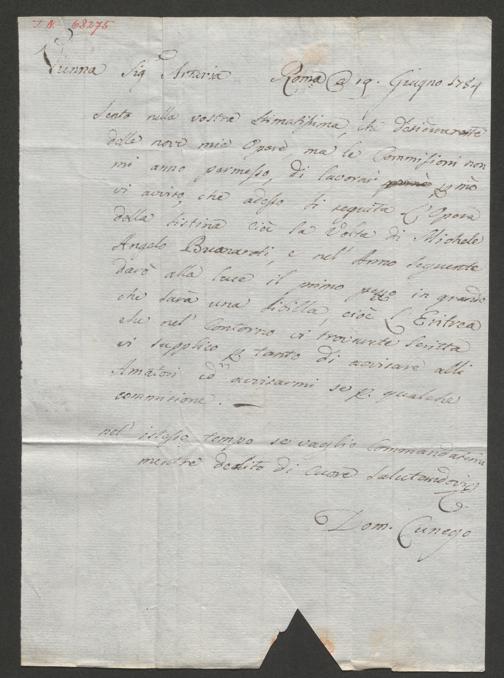 I.N. 68275
Vienna Sigr Artaria Roma @ 19. Giugno 1784
Sento nella vostra stimatissima, che desiderate
delle nove mie Opere ma le Commissioni non
mi anno permesso, di lavorar
vi aviso, che adesso di seguita L'Opera
della Sistina cioè la Volta di Michele
Angelo Buonaroti, e nel Anno seguente
darò alla luce il primo pezzo in grande
che sarà una Sibilla cioè L'Eritrea
che nel Contorno ci troverete Scritta
vi supplico p tanto di avisare alli
Amatori ed avisarmi se p. qualche
commissione. —
nel istesso tempo se vaglio Commandatemi
mentre di Cuore Salutandovi
Dom. Cunego